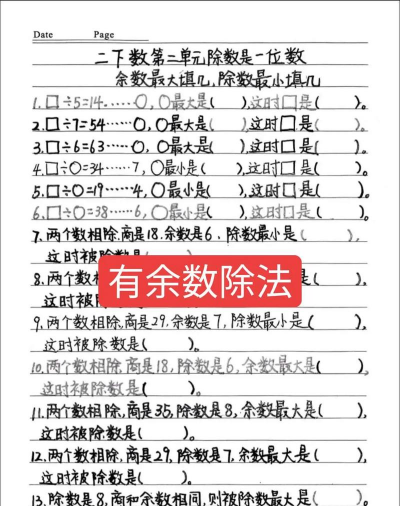 Date Page
二下数第二单元除数是一位数
余数最大填几,除数最小填几
1.□÷5=14……○,○最大是( ),这时□是( )。
2.□÷7=54……○,○最大是( ),这时□是( )。
3.□÷6=63……○,○最大是( ),这时□是( )。
4.□÷○=34……7,○最小是( ),这时□是( )。
5.□÷○=19……4,○最小是( ),这时□是( )。
6.□÷○=38……6,○最小是( ),这时□是( )。
7.两个数相除,商是18.余数是6、除数最小是( ),
这时被除数是( )。
8.两个数
有余数除法
这时被
9.两个数相除,商是29,余数是7,除数最小是( ),
这时被除数是( )。
10.两个数相除,商是18,除数是6,余数最大是( ),
这时被除数是( )。
11.两个数相除,商是35,除数是8,余数最大是( ),
这时被除数是( )。
12.两个数相除,商是29,除数是7,余数最大是( ),
这时被除数是( )。
13.除数是8,商和余数相同,则被除数最大是( )。